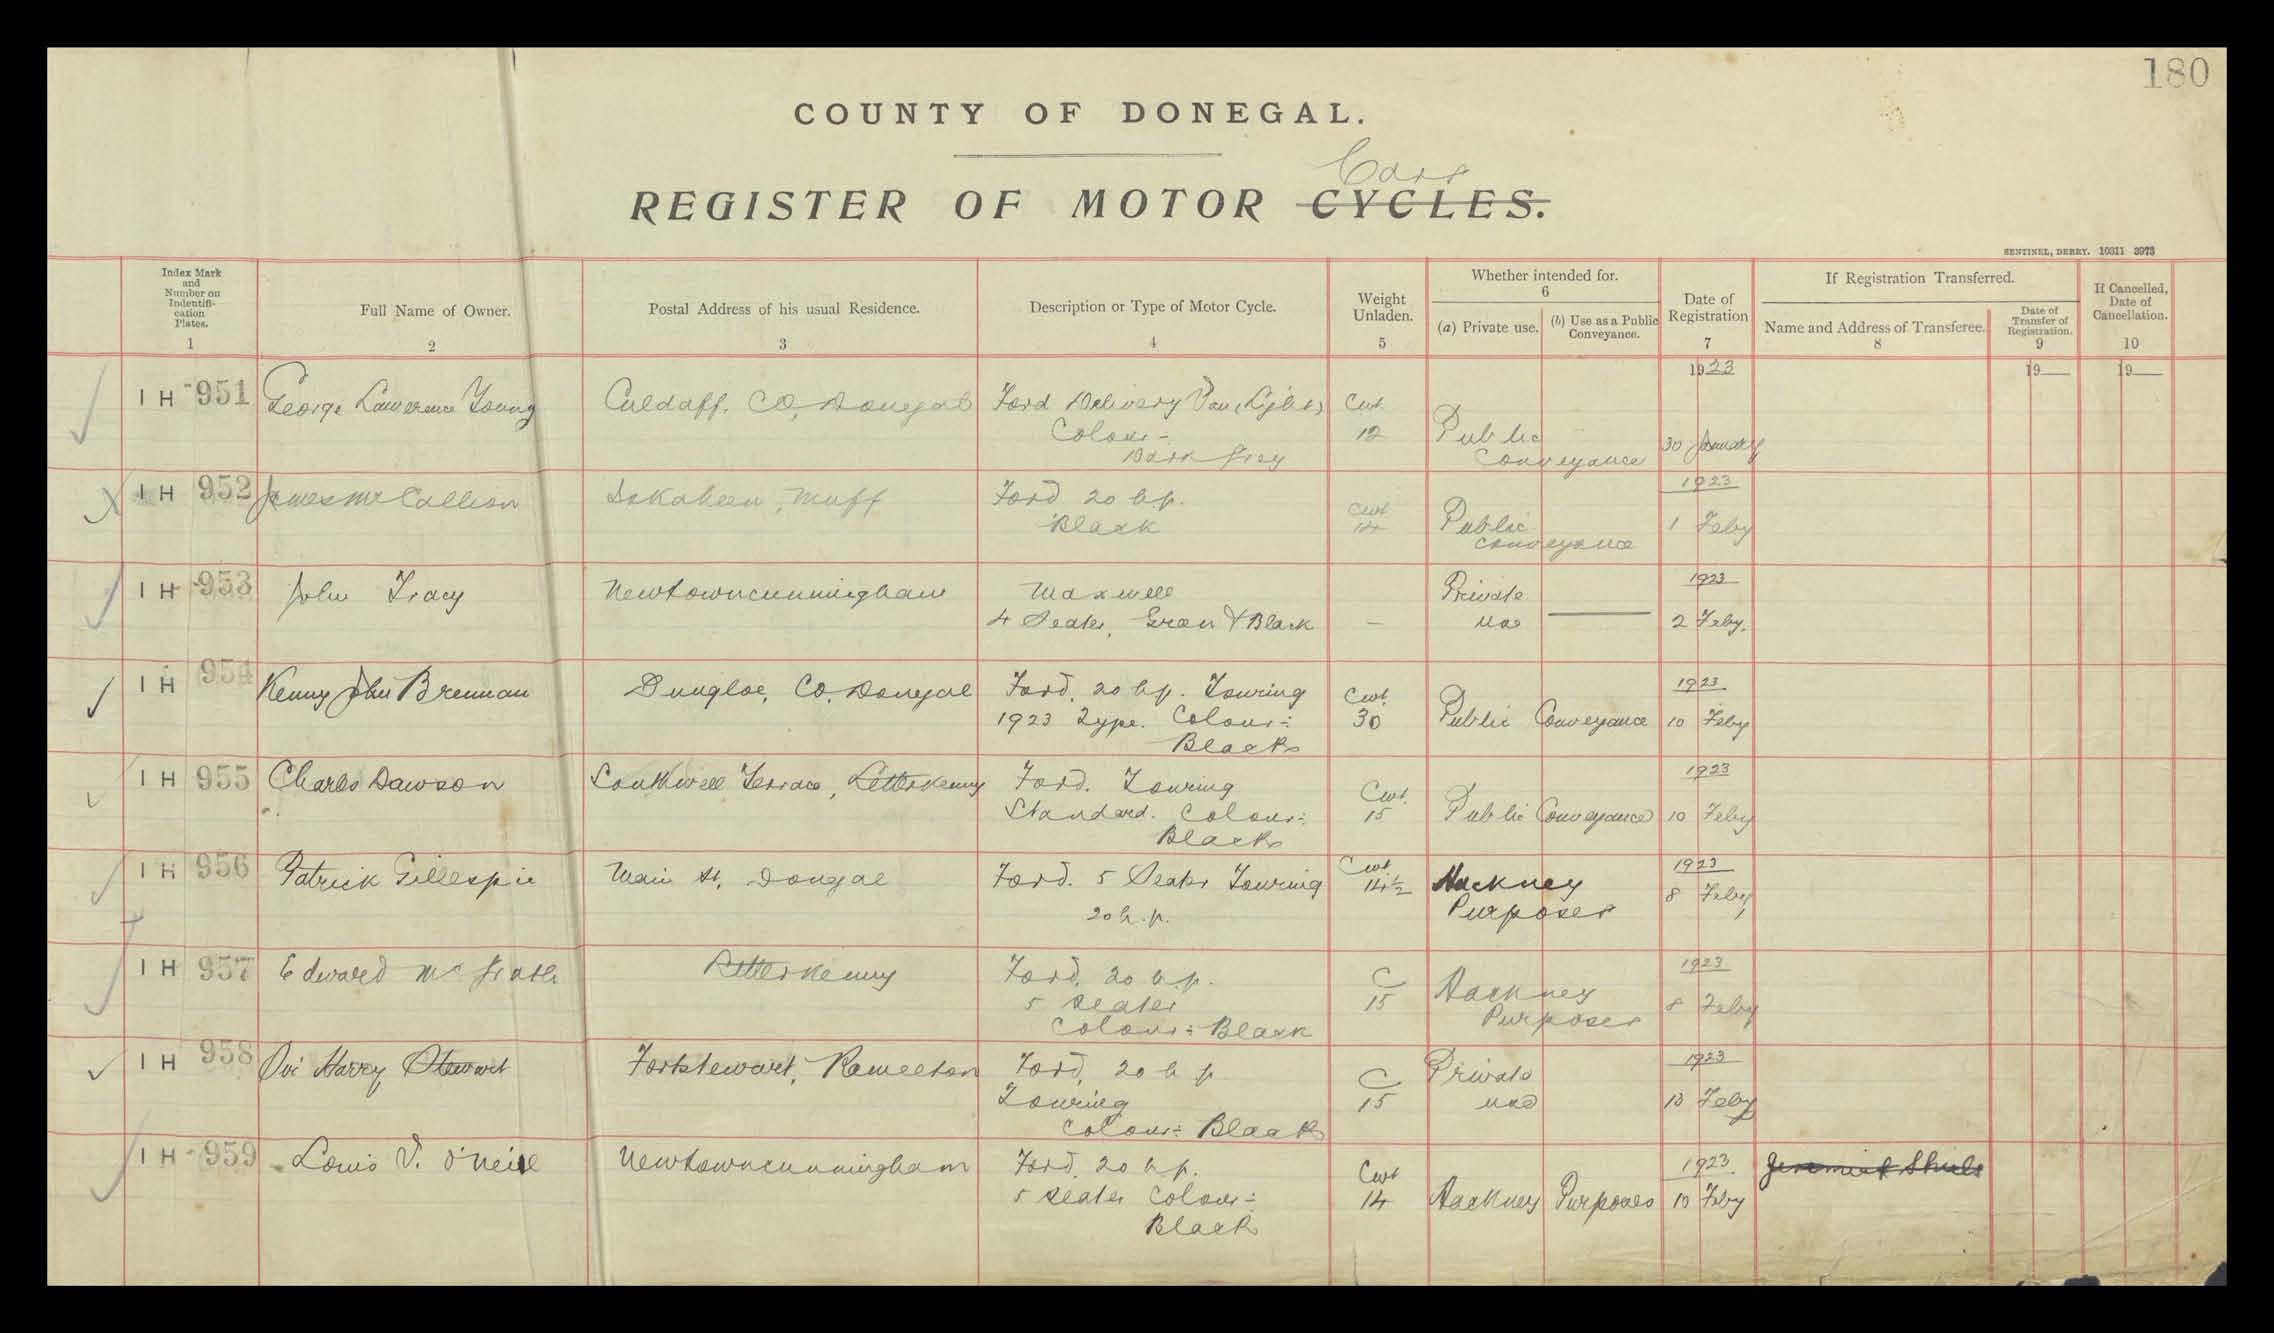 180
COUNTY OF DONEGAL.
Cars
REGISTER OF MOTOR CYCLES.
SENTINEL, DERRY. 10311 3973
Index Mark and Number on Indentifi-cation Plates. 1
Full Name of Owner. 2
Postal Address of his usual Residence. 3
Description or Type of Motor Cycle. 4
Weight Unladen. 5
Whether intended for. 6
(a) Private use.
(b) Use as a Public Conveyance.
Date of Registration 7
If Registration Transferred.
Name and Address of Transferee. 8
Date of Transfer of Registration. 9
If Cancelled, Date of Cancellation. 10
1923 19 19
IH 951 George Lawrence Young Culdaff, Co, Donegal Ford Delivery Van (Light) Cwt.
Colour - 12 Public 30 January
Dark Grey Conveyance
IH 952 James McCallion Iskaheen, Muff Ford 20 h.p. Cwt 1923
Black 14 Public 1 Feby
Conveyance
IH 953 John Tracy Newtowncunningham Maxwell Private 1923
4 Seater, Green & Black - use 2 Feby.
IH 954 Kenny John Brennan Dungloe, Co, Donegal Ford, 20 h.p. Touring Cwt. 1923
1923 Type. Colour:- 30 Public Conveyance 10 Feby
Black
IH 955 Charles Dawson Southwell Terrace, Letterkenny Ford. Touring Cwt. 1923
Standard. Colour:- 15 Public Conveyance 10 Feby
Black
IH 956 Patrick Gillespie Main St, Dongal Ford. 5 Seater Touring Cwt 14½ Hackney 1923
20 h.p. Purposes 8 Feby
IH 957 Edward McGrath Letterkenny Ford, 20 h.p. C 1923
5 seater 15 Hackney 8 Feby
Colour:- Black Purposes
IH 958 Harry Stewart Fortstewart, Ramelton Ford, 20 h p C Private 1923
Touring 15 use 13 Feby
Colour:- Black
IH 959 Louis V. O'Neill Newtowncunningham Ford, 20 h.p. Cwt 1923 Jeremiah Shiels
5 seater Colour:- 14 Hackney Purposes 10 Feby
Black